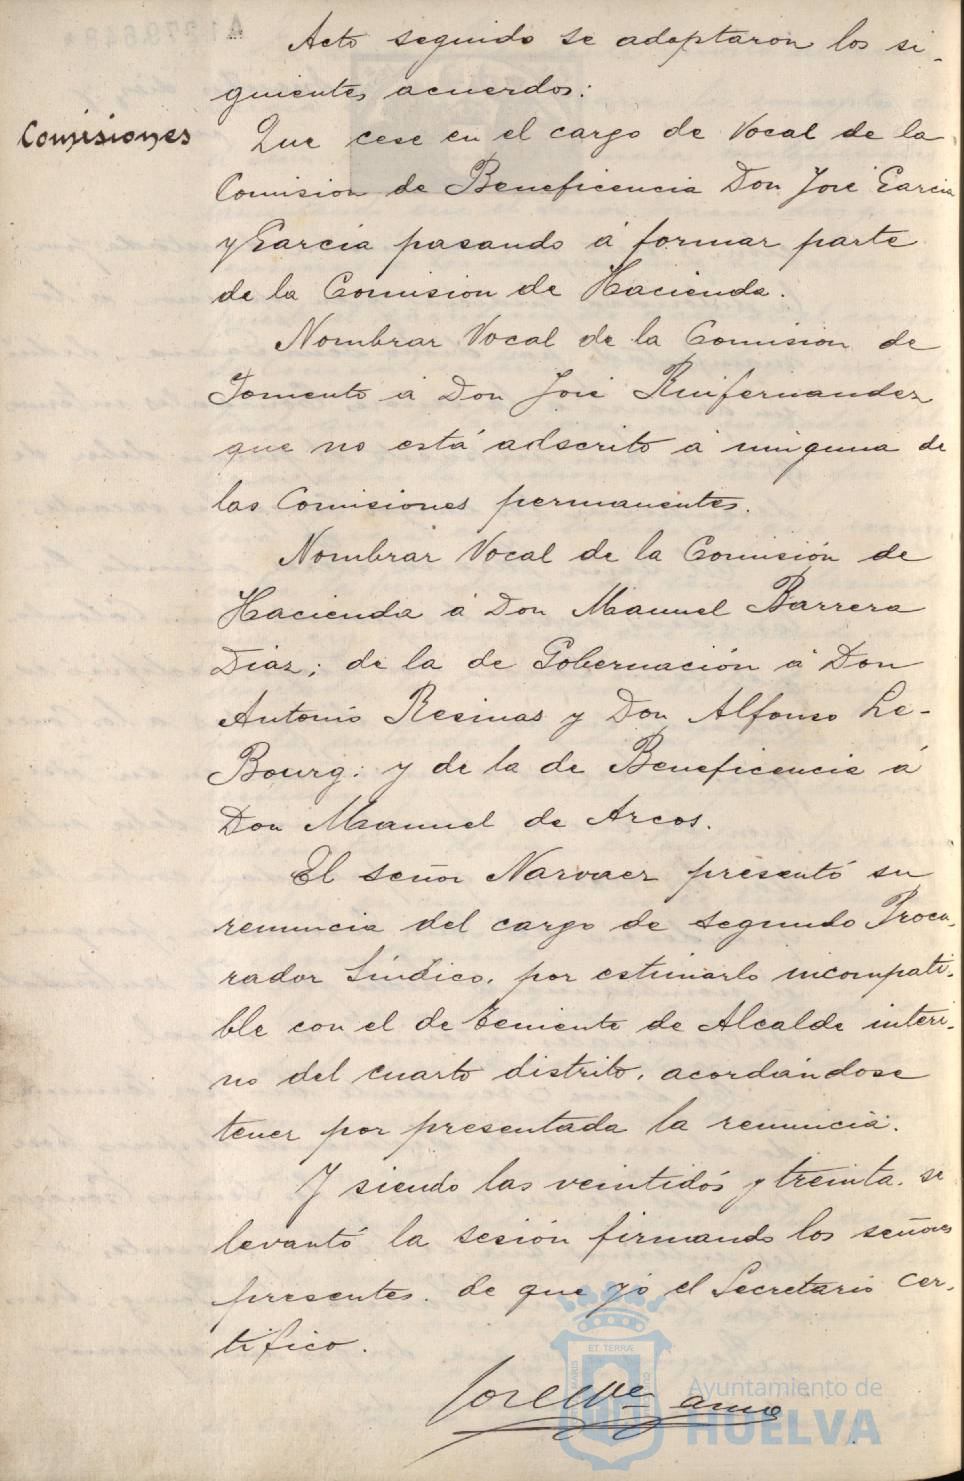 Acto seguido se adoptaron los si-
guientes acuerdos:
Comisiones
Que cese en el cargo de Vocal de la
Comision de Beneficencia Don José Garcia
y Garcia pasando á formar parte
de la Comision de Hacienda.
Nombrar Vocal de la Comision de
Fomento á Don José Ruifernandez
que no está adscrito á ninguna de
las Comisiones permanentes.
Nombrar Vocal de la Comisión de
Hacienda á Don Manuel Barrera
Diaz; de la de Gobernación á Don
Antonio Resinas y Don Alfonso Le-
Bourg; y de la de Beneficencia á
Don Manuel de Arcos.
El señor Narvaez presentó su
renuncia del cargo de segundo Procu-
rador Síndico, por estimarlo incompati-
ble con el de Teniente de Alcalde interi-
no del cuarto distrito, acordándose
tener por presentada la renuncia.
Y siendo las veintidós y treinta, se
levantó la sesión firmando los señores
presentes, de que yo el Secretario cer-
tifico.
ET TERRÆ
Ayuntamiento de
HUELVA